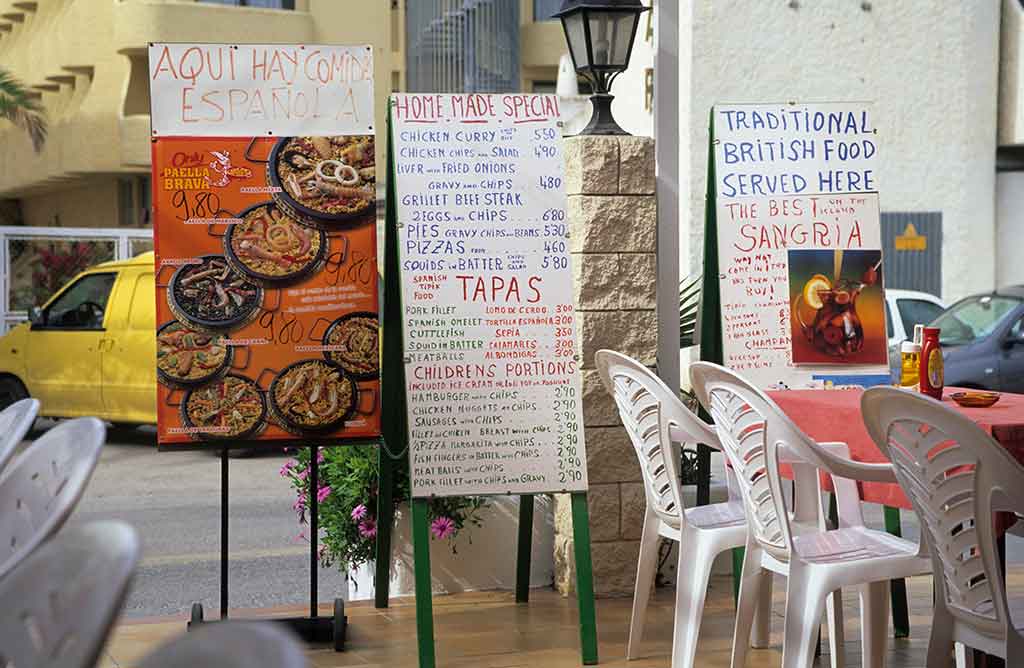 AQUI HAY COMIDA
ESPAÑOLA
Only
PAELLA
BRAVA
9,80
PAELLA MIXTA
9,80
9,80
HOME MADE SPECIAL
CHICKEN CURRY 5'50
CHICKEN CHIPS AND SALAD. 4'90
LIVER WITH FRIED ONIONS
GRAVY AND CHIPS 4'80
GRILLET BEEF STEAK
2EGGS AND CHIPS .... 6'80
PIES GRAVY CHIPS AND BEANS. 5'30
PIZZAS FROM .... 4'60
SQUIDS IN BATTER CHIPS AND SALAD 5'80
SPANISH
TIPIK
FOOD
TAPAS
PORK FILLET LOMO DE CERDO. 3'00
SPANISH OMELET TORTILLA ESPAÑOLA 3'00
CUTTLEFISH SEPIA 3'50
SQUID IN BATTER CALAMARES .. 3'00
MEATBALLS ALBONDIGAS .. 3'00
CHILDRENS PORTIONS
INCLUDED ICE CREAM
HAMBURGER WITH CHIPS ... 2'90
CHICKEN NUGGETS WITH CHIPS .. 2'90
SAUSAGES WITH CHIPS .... 2'90
FILLET OF CHIKEN BREAST WITH CHIPS 2'90
PIZZA MARGARITA WITH CHIPS .. 2'90
FISH FINGERS IN BATTER WITH CHIPS. 2'90
MEAT BALLS WITH CHIPS ... 2'90
PORK FILLET WITH CHIPS AND GRAVY 2'90
TRADITIONAL
BRITISH FOOD
SERVED HERE
THE BEST ON THE ISLAND
SANGRIA
WHY NOT
COME IN &
YOU!